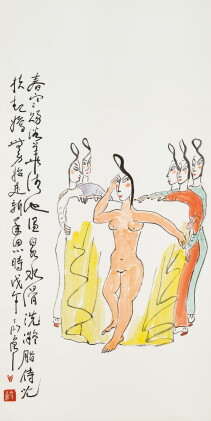 春寒赐浴华清池温泉水滑洗凝脂侍儿
扶起娇无力始是新承恩泽时戊午